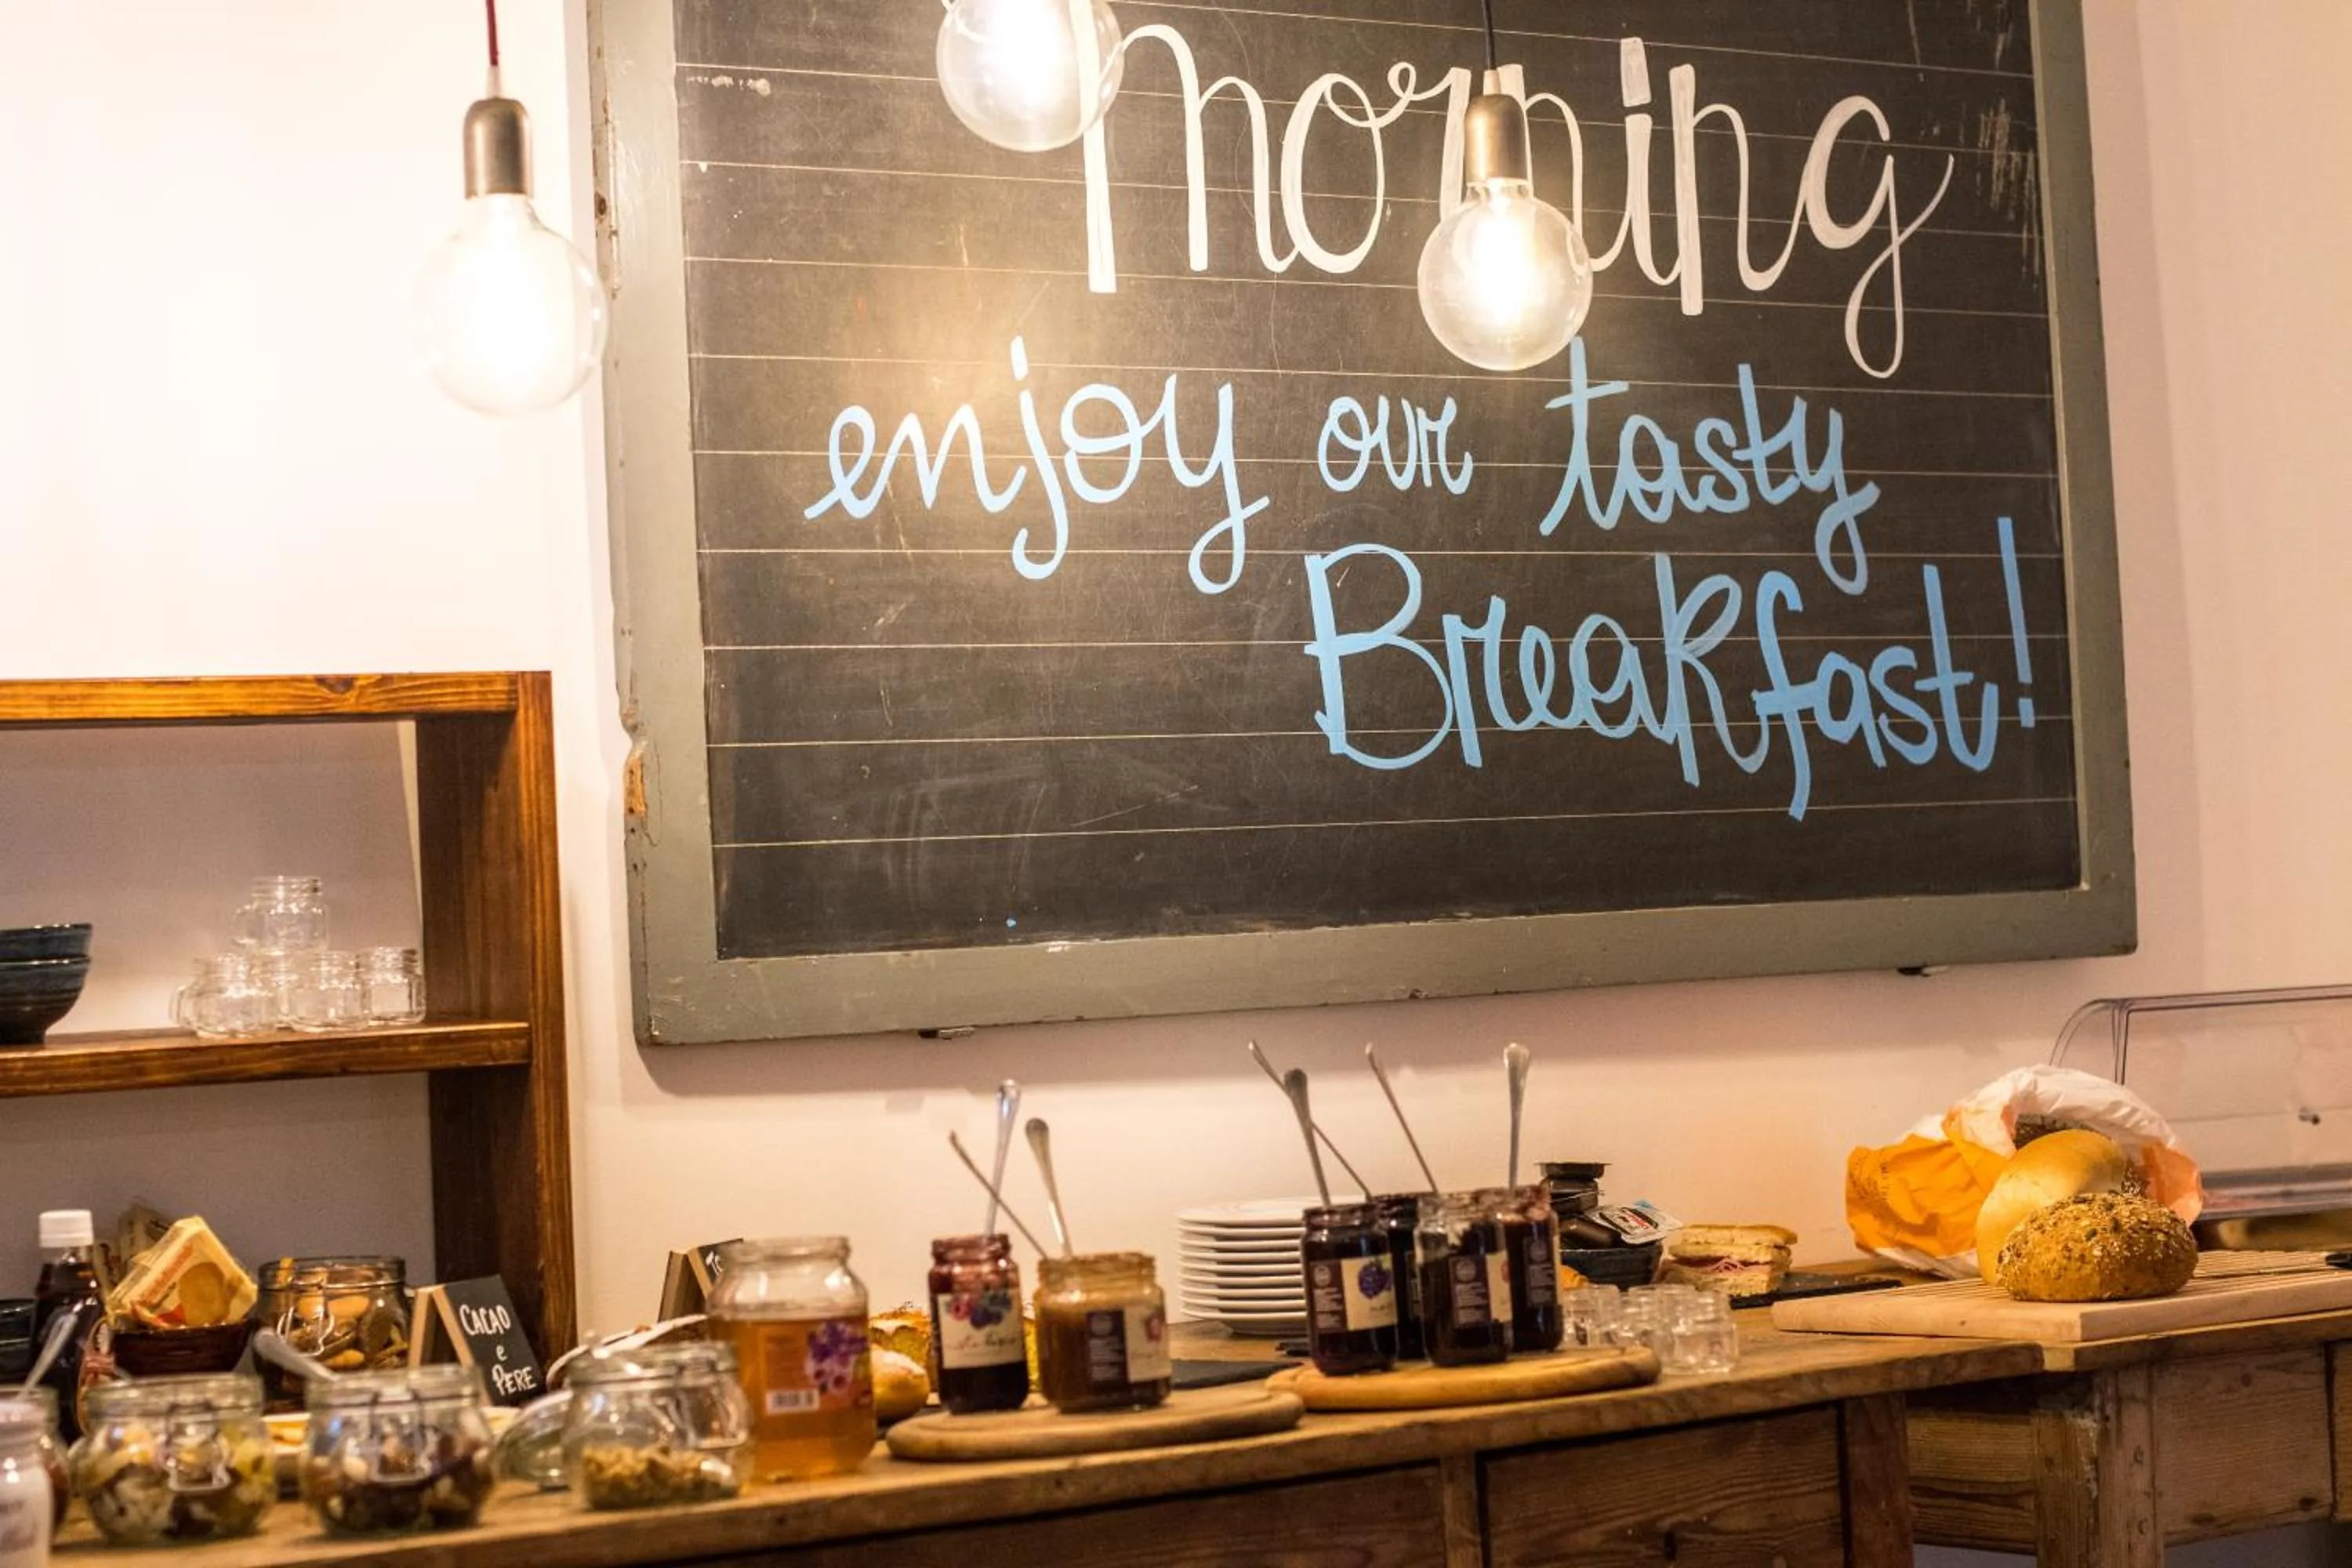 morning
enjoy our tasty
Breakfast!
CACAO
e
PERE